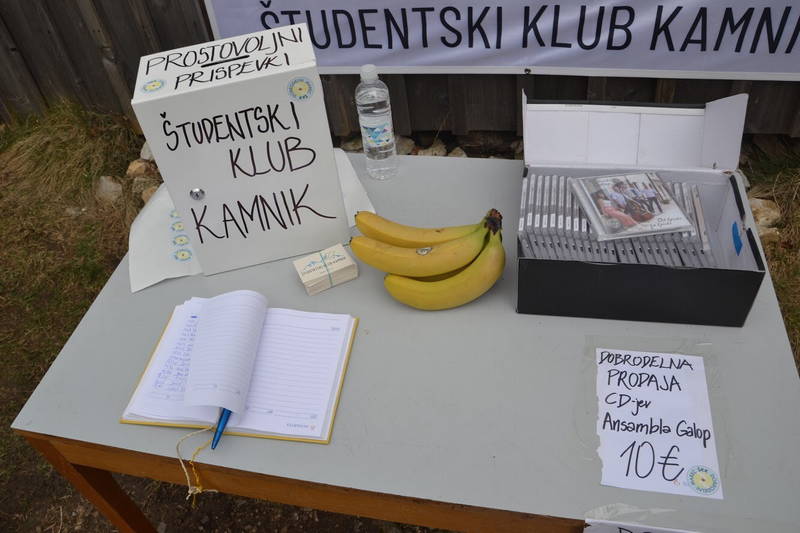 ŠTUDENTSKI KLUB KAMNI
PROSTOVOLJNI
PRISPEVKI
ŠTUDENTSKI
KLUB
KAMNIK
DOBRODELNA
PRODAJA
CD-jev
Ansambla Galop
10 €